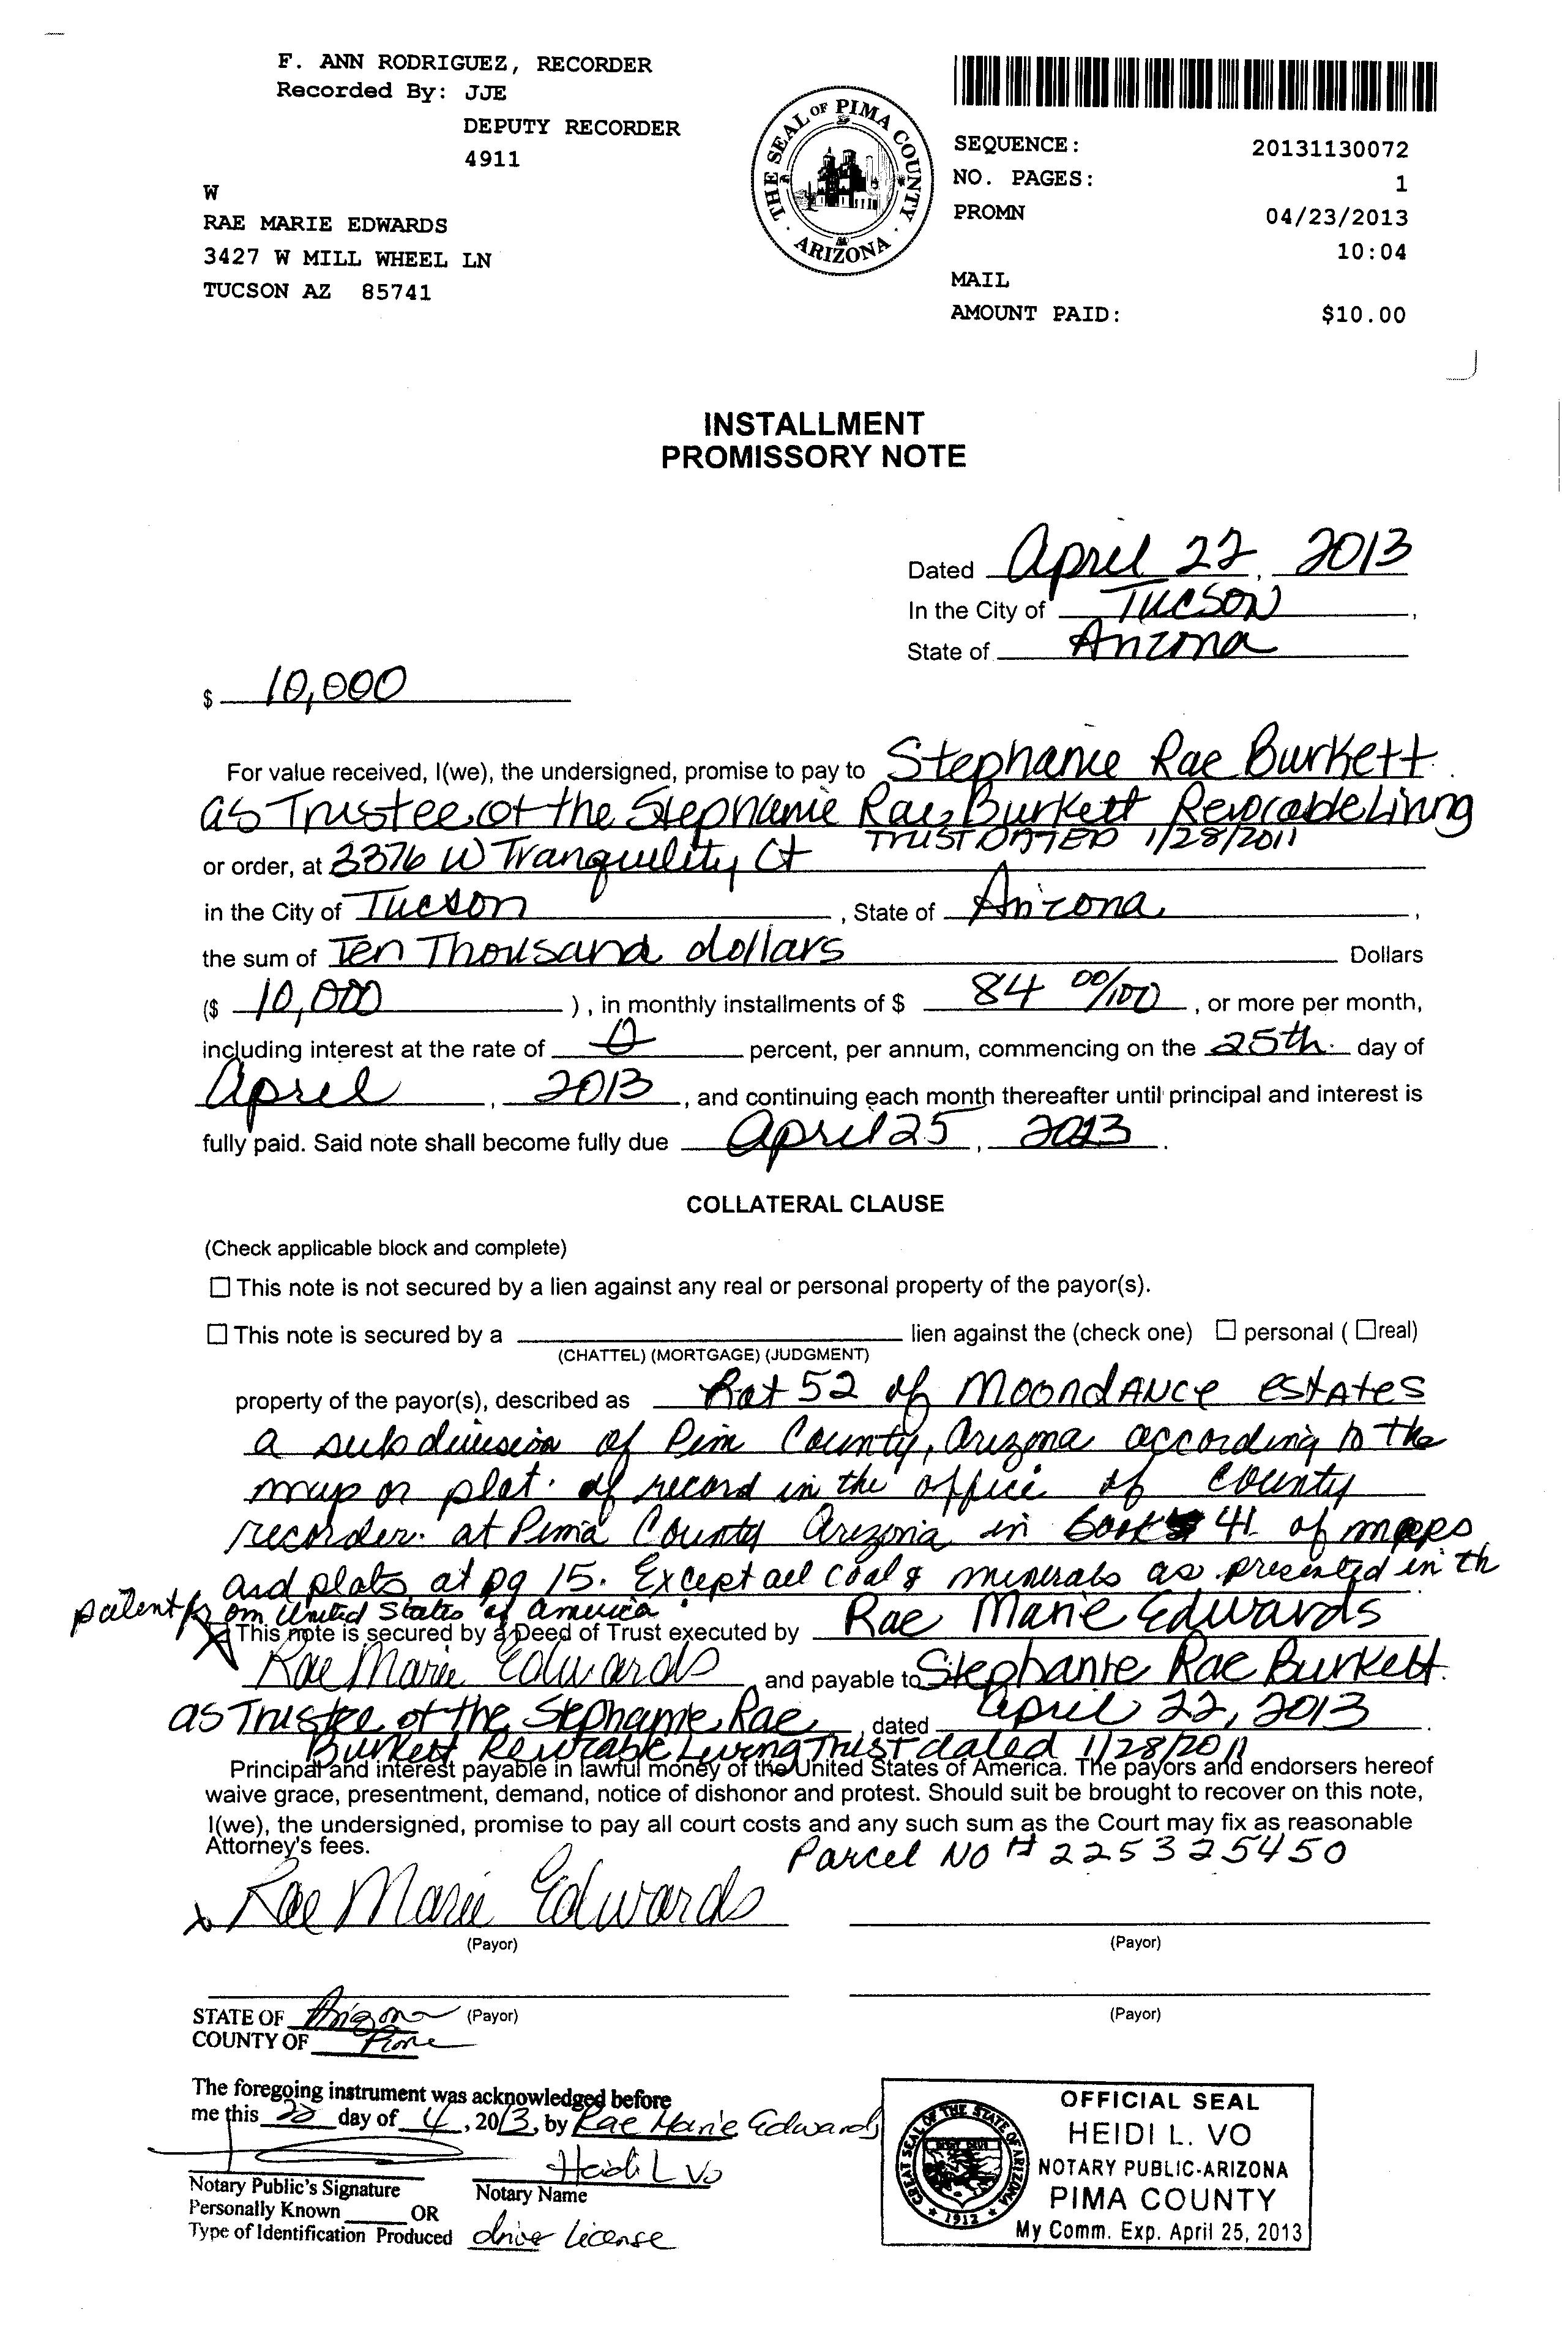 F. ANN RODRIGUEZ, RECORDER
Recorded By: JJE
DEPUTY RECORDER
4911
W
RAE MARIE EDWARDS
3427 W MILL WHEEL LN
TUCSON AZ 85741
THE SEAL OF PIMA COUNTY
ARIZONA
SEQUENCE: 20131130072
NO. PAGES: 1
PROMN 04/23/2013
10:04
MAIL
AMOUNT PAID: $10.00
INSTALLMENT
PROMISSORY NOTE
Dated April 22, 2013
In the City of Tucson,
State of Arizona
$ 10,000
For value received, I(we), the undersigned, promise to pay to Stephanie Rae Burkett
as Trustee of the Stephanie Rae Burkett Revocable Living
TRUST DATED 1/28/2011
or order, at 3376 W Tranquility Ct
in the City of Tucson, State of Arizona,
the sum of Ten Thousand dollars Dollars
($ 10,000 ), in monthly installments of $ 84 00/100, or more per month,
including interest at the rate of 0 percent, per annum, commencing on the 25th day of
April, 2013, and continuing each month thereafter until principal and interest is
fully paid. Said note shall become fully due April 25, 2023.
COLLATERAL CLAUSE
(Check applicable block and complete)
☐ This note is not secured by a lien against any real or personal property of the payor(s).
☐ This note is secured by a lien against the (check one) ☐ personal ( ☐ real)
(CHATTEL) (MORTGAGE) (JUDGMENT)
property of the payor(s), described as Lot 52 of MOONDANCE estates
a subdivision of Pim County, Arizona according to the
map or plat of record in the office of county
recorder at Pima County Arizona in book 41 of maps
and plats at pg 15. Except all coal & minerals as presented in th
patent from United States of America
☒ This note is secured by a Deed of Trust executed by Rae Marie Edwards
Rae Marie Edwards and payable to Stephanie Rae Burkett
as Trustee of the Stephanie Rae, dated April 22, 2013.
Burkett Revocable Living Trust dated 1/28/2011
Principal and interest payable in lawful money of the United States of America. The payors and endorsers hereof
waive grace, presentment, demand, notice of dishonor and protest. Should suit be brought to recover on this note,
I(we), the undersigned, promise to pay all court costs and any such sum as the Court may fix as reasonable
Attorney's fees.
Parcel No # 225325450
x Rae Marie Edwards
(Payor) (Payor)
STATE OF Arizona (Payor) (Payor)
COUNTY OF Pima
The foregoing instrument was acknowledged before
me this 22 day of 4, 2013, by Rae Marie Edwards
Heidi L Vo
Notary Public's Signature Notary Name
Personally Known ____ OR
Type of Identification Produced driver License
GREAT SEAL OF THE STATE OF ARIZONA
1912
OFFICIAL SEAL
HEIDI L. VO
NOTARY PUBLIC-ARIZONA
PIMA COUNTY
My Comm. Exp. April 25, 2013